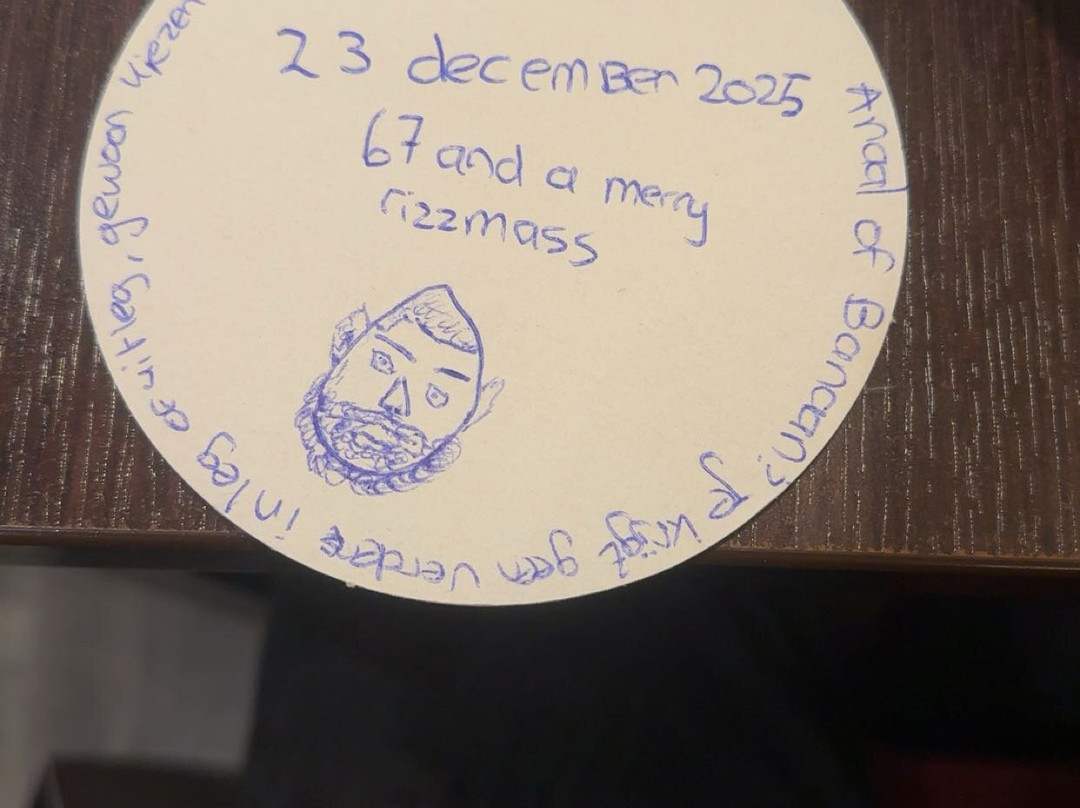 23 december 2025
67 and a merry
rizzmass
Anaal of Banaan? je krijgt geen verdere inleg of uitleg, gewoon kiezen